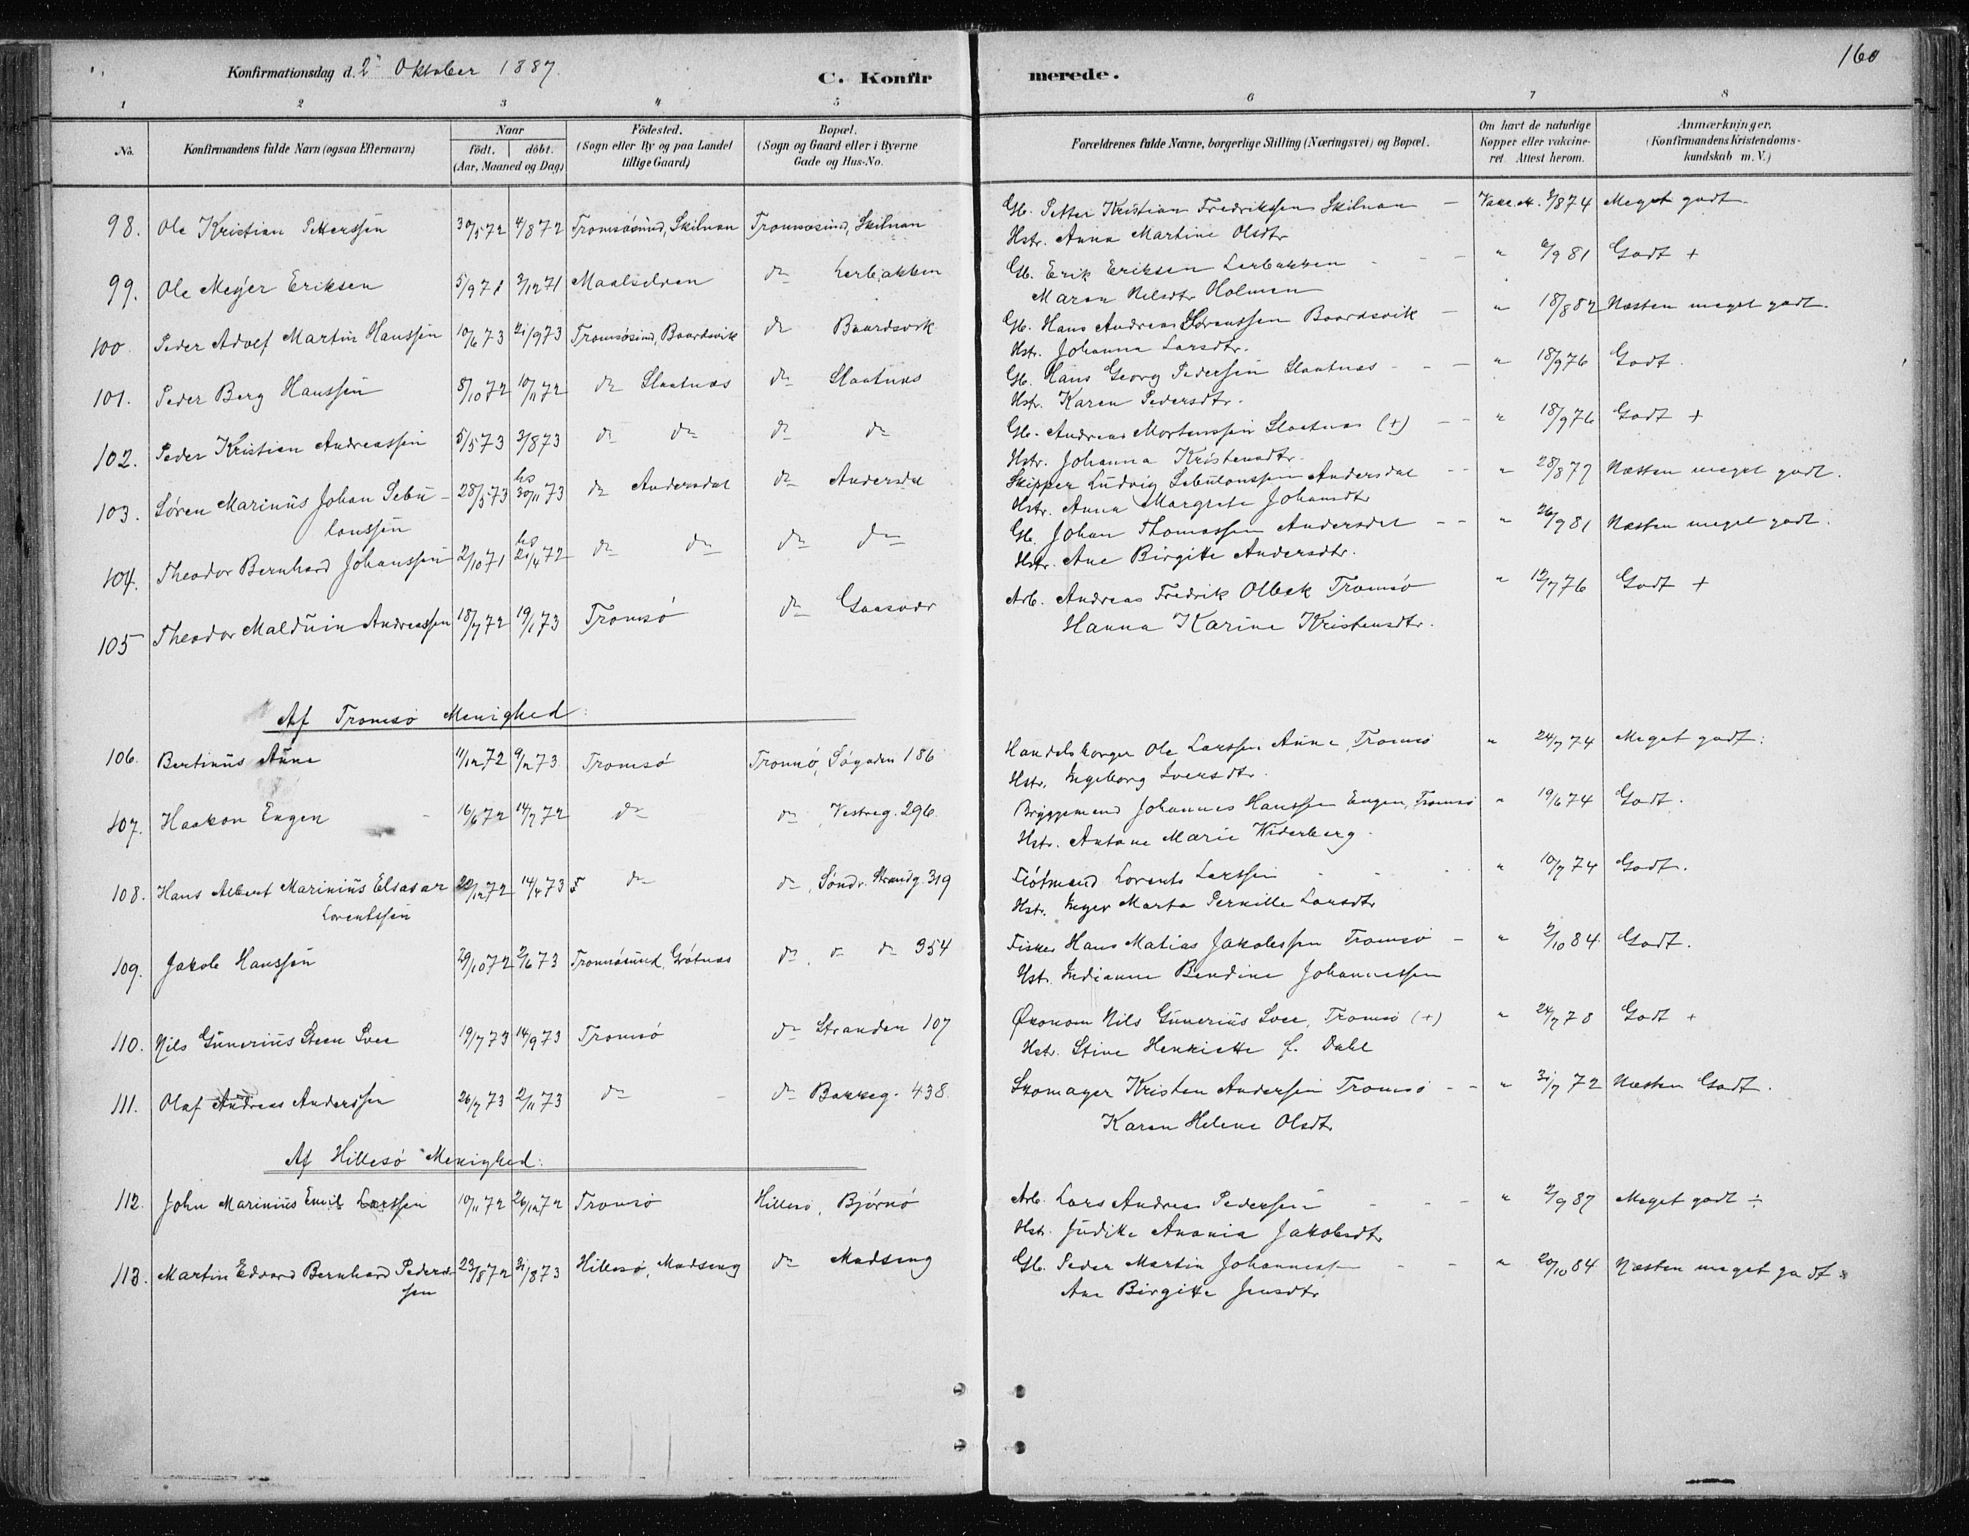 160
Konfirmationsdag d. 2den Oktober 1887.
C. Konfirmerede.
1 2 3 4 5 6 7 8
No. Konfirmandens fulde Navn (ogsaa Efternavn) Naar födt. döbt. (Aar, Maaned og Dag) Födested. (Sogn eller By og paa Landet tillige Gaard) Bopæl. (Sogn og Gaard eller i Byerne Gade og Hus-No. Forældrenes fulde Navne, borgerlige Stilling (Næringsvei) og Bopæl. Om havt de naturlige Kopper eller vakcineret. Attest herom. Anmærkninger, (Konfirmandens Kristendomskundskab m. V.)
98. Ole Kristian Petterssen 30/5 72 4/8 72 Tromsøsund, Skilnan Tromsøsund, Skilnan Gb. Petter Kristian Fredrikssen Skilnan — Vakc. A. 9/8 74 Meget godt
Hstr. Anna Martine Olsdtr
99. Ole Meyer Eriksen 5/9 71 3/12 71 Maalselven do Lerbakken Gb. Erik Eriksen Lerbakken - - — " 6/9 81 Godt +
Maren Nilsdtr Holmen
100. Peder Adolf Martin Hanssen 10/6 73 21/9 73 Tromsøsund, Baardsvik do Baardsvik Gb. Hans Andreas Sørenssen Baardsvik — " 18/8 82 Næsten meget godt.
Hstr. Johanna Larsdtr.
101. Peder Berg Hanssen 8/10 72 10/11 72 do Slaatnæs do Slaatnæs Gb. Hans Georg Pedersen Slaatnæs - - — " 18/9 76 Godt.
Hstr. Karen Pedersdtr.
102. Peder Kristian Andreassen 5/5 73 3/8 73 do do do do Gb. Andreas Mortenssen Slaatnæs (+) — — " 18/9 76 Godt +
Hstr. Johanna Kristensdtr.
103. Søren Marinus Johan Sebu- 28/5 73 hs 30/11 73 do Andersdal do Andersdal Skipper Ludvig Sebulonssen Andersdal - - " 28/8 77 Næsten meget godt.
lonssen Hstr. Anna Margrete Johansdtr
104. Theodor Bernhard Johanssen 2/10 71 hs 21/4 72 do do do do Gb. Johan Thomassen Andersdal - - " 26/9 81 Næsten meget godt.
Hstr. Ane Birgitte Andersdtr.
105 Theodor Malduin Andreassen 18/7 72 19/1 73 Tromsø do Gaasvær Arb. Andreas Fredrik Olbek Tromsø " 12/7 76 Godt +
Hanna Karine Kristensdtr.
Af Tromsø Menighed:
106. Bertinus Aune 11/12 72 9/2 73. Tromsø Tromsø, Søgaden 186 Handelsborger Ole Larssen Aune, Tromsø " 24/7 74 Meget godt:
Hstr. Ingeborg Iversdtr.
107. Haakon Engen 16/6 72 14/7 72 do do Vestreg. 296. Bryggemand Johannes Hanssen Engen, Tromsø " 19/6 74 Godt.
Hstr. Antone Marie Widerberg.
108. Hans Albert Marinius Elsasar 22/12 72 14/4 73 do do, Søndr. Strandg. 319 Flotmand Lorents Larssen - - - " 10/7 74 Godt.
Lorentssen Hstr. Inger Marta Pernille Larsdtr
109. Jakob Hanssen 29/10 72 2/6 73 Tromsøsund, Grøtnæs do, do do 354 Fisker Hans Matias Jakobssen Tromsø - " 2/10 84 Godt.
Hstr. Indianne Bendine Johannessen
110. Nils Gunerius Steen Svee 19/7 73 14/9 73 Tromsø do Stranden 107 Økonom Nils Gunerius Svee, Tromsø (+) " 24/7 78 Godt +
Hstr. Stine Henriette f. Dahl
111. Olaf Andreas Anderssen 26/7 73 2/11 73 do - do Bakkeg. 438. Skomager Kristen Anderssen Tromsø - - " 31/7 72 Næsten Godt.
Karen Helene Olsdtr
Af Hillesø Menighed:
112. John Marinius Emil Larssen 10/11 72 26/12 72 Tromsø Hillesø, Bjørnø Arb. Lars Andreas Pederssen - - - " 2/9 87 Meget godt ÷
Hstr. Judithe Anania Jakobsdtr
113. Martin Edvard Bernhard Peders- 23/8 72 31/8 73 Hillesø, Madseng do Madseng Gb. Peder Martin Johannessen - - " 20/10 84 Næsten meget godt.
sen Ane Birgitte Jensdtr